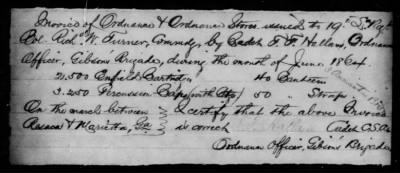 Invoice of Ordnance & Ordnance Stores issued to 19th La Regt
Col. Rich'd W. Turner, Comndg, by Cadet T. F. Hollans, Ordnance
Officer, Gibsons Brigade, during the month of June 1864.
21,500 Enfield Cartridges 40 Canteens
3,250 Percussion Caps 50 " Straps
On the march between I certify that the above Invoice
Resaca & Marietta, Ga is correct
Cadet C.S.A.
Ordnance Officer, Gibsons Brigade